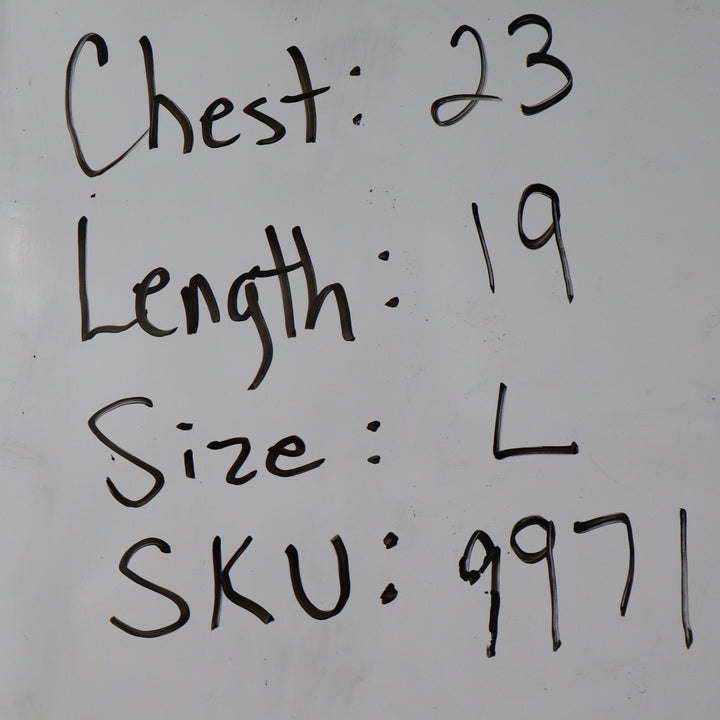 Chest: 23
Length: 19
Size: L
SKU: 9971